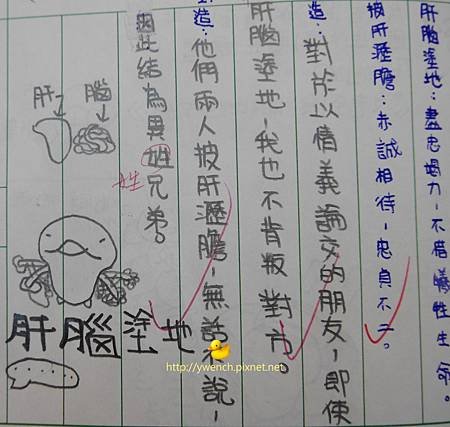 肝腦塗地：盡忠竭力，不惜犧牲生命。
披肝瀝膽：赤誠相待，忠貞不二。
造：對於以情義論交的朋友，即使
肝腦塗地，我也不背叛對方。
造：他們兩人披肝瀝膽，無話不說，
因此結為異姓兄弟。
姓
腦
肝
肝腦塗地
......
http://ywench.pixnet.net